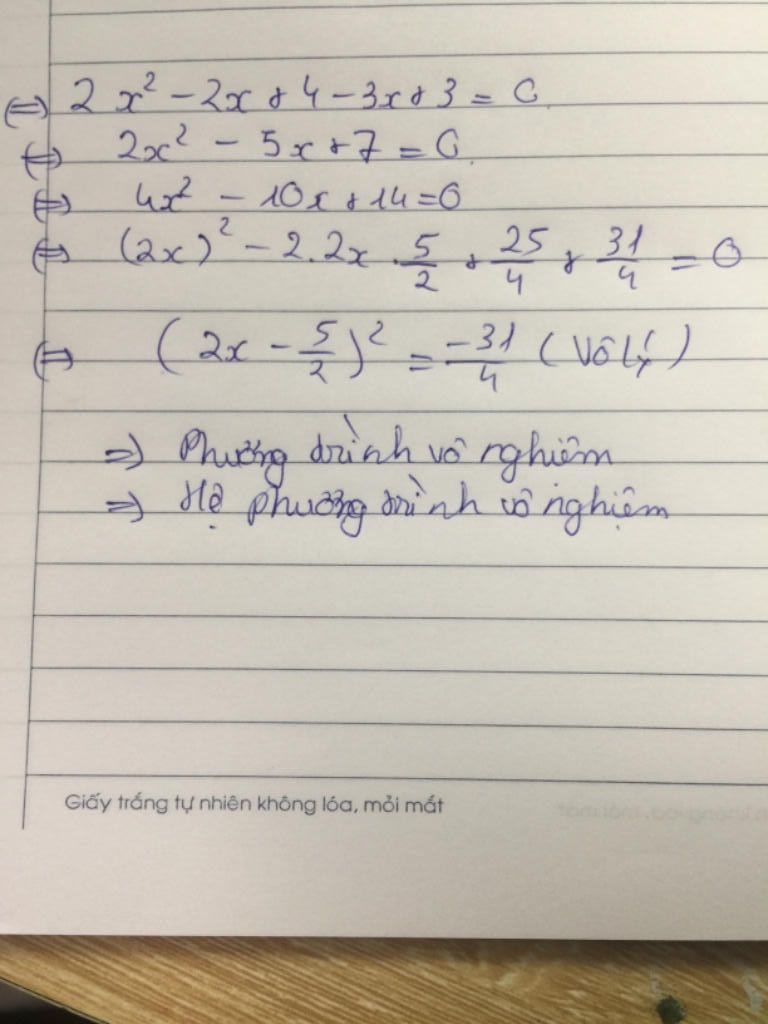 ⇔ 2x² - 2x + 4 - 3x + 3 = 0
⇔ 2x² - 5x + 7 = 0
⇔ 4x² - 10x + 14 = 0
⇔ (2x)² - 2.2x.5/2 + 25/4 + 31/4 = 0
⇔ (2x - 5/2)² = -31/4 (Vô lý)
⇒ Phương trình vô nghiệm
⇒ Hệ phương trình vô nghiệm
Giấy trắng tự nhiên không lóa, mỏi mắt